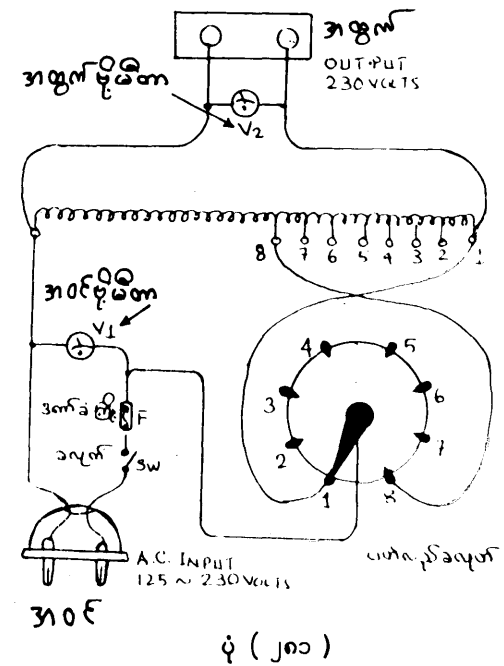 အထွက်
OUTPUT
230 VOLTS
အထွက်ဗို့မီတာ
V2
8 7 6 5 4 3 2 1
အဝင်ဗို့မီတာ
V1
4 5
3 6
F
2 7
ခလုတ်
SW
1 8
A.C. INPUT
125 ~ 230 VOLTS
အဝင်
ပုံ ( ၂၈၁ )